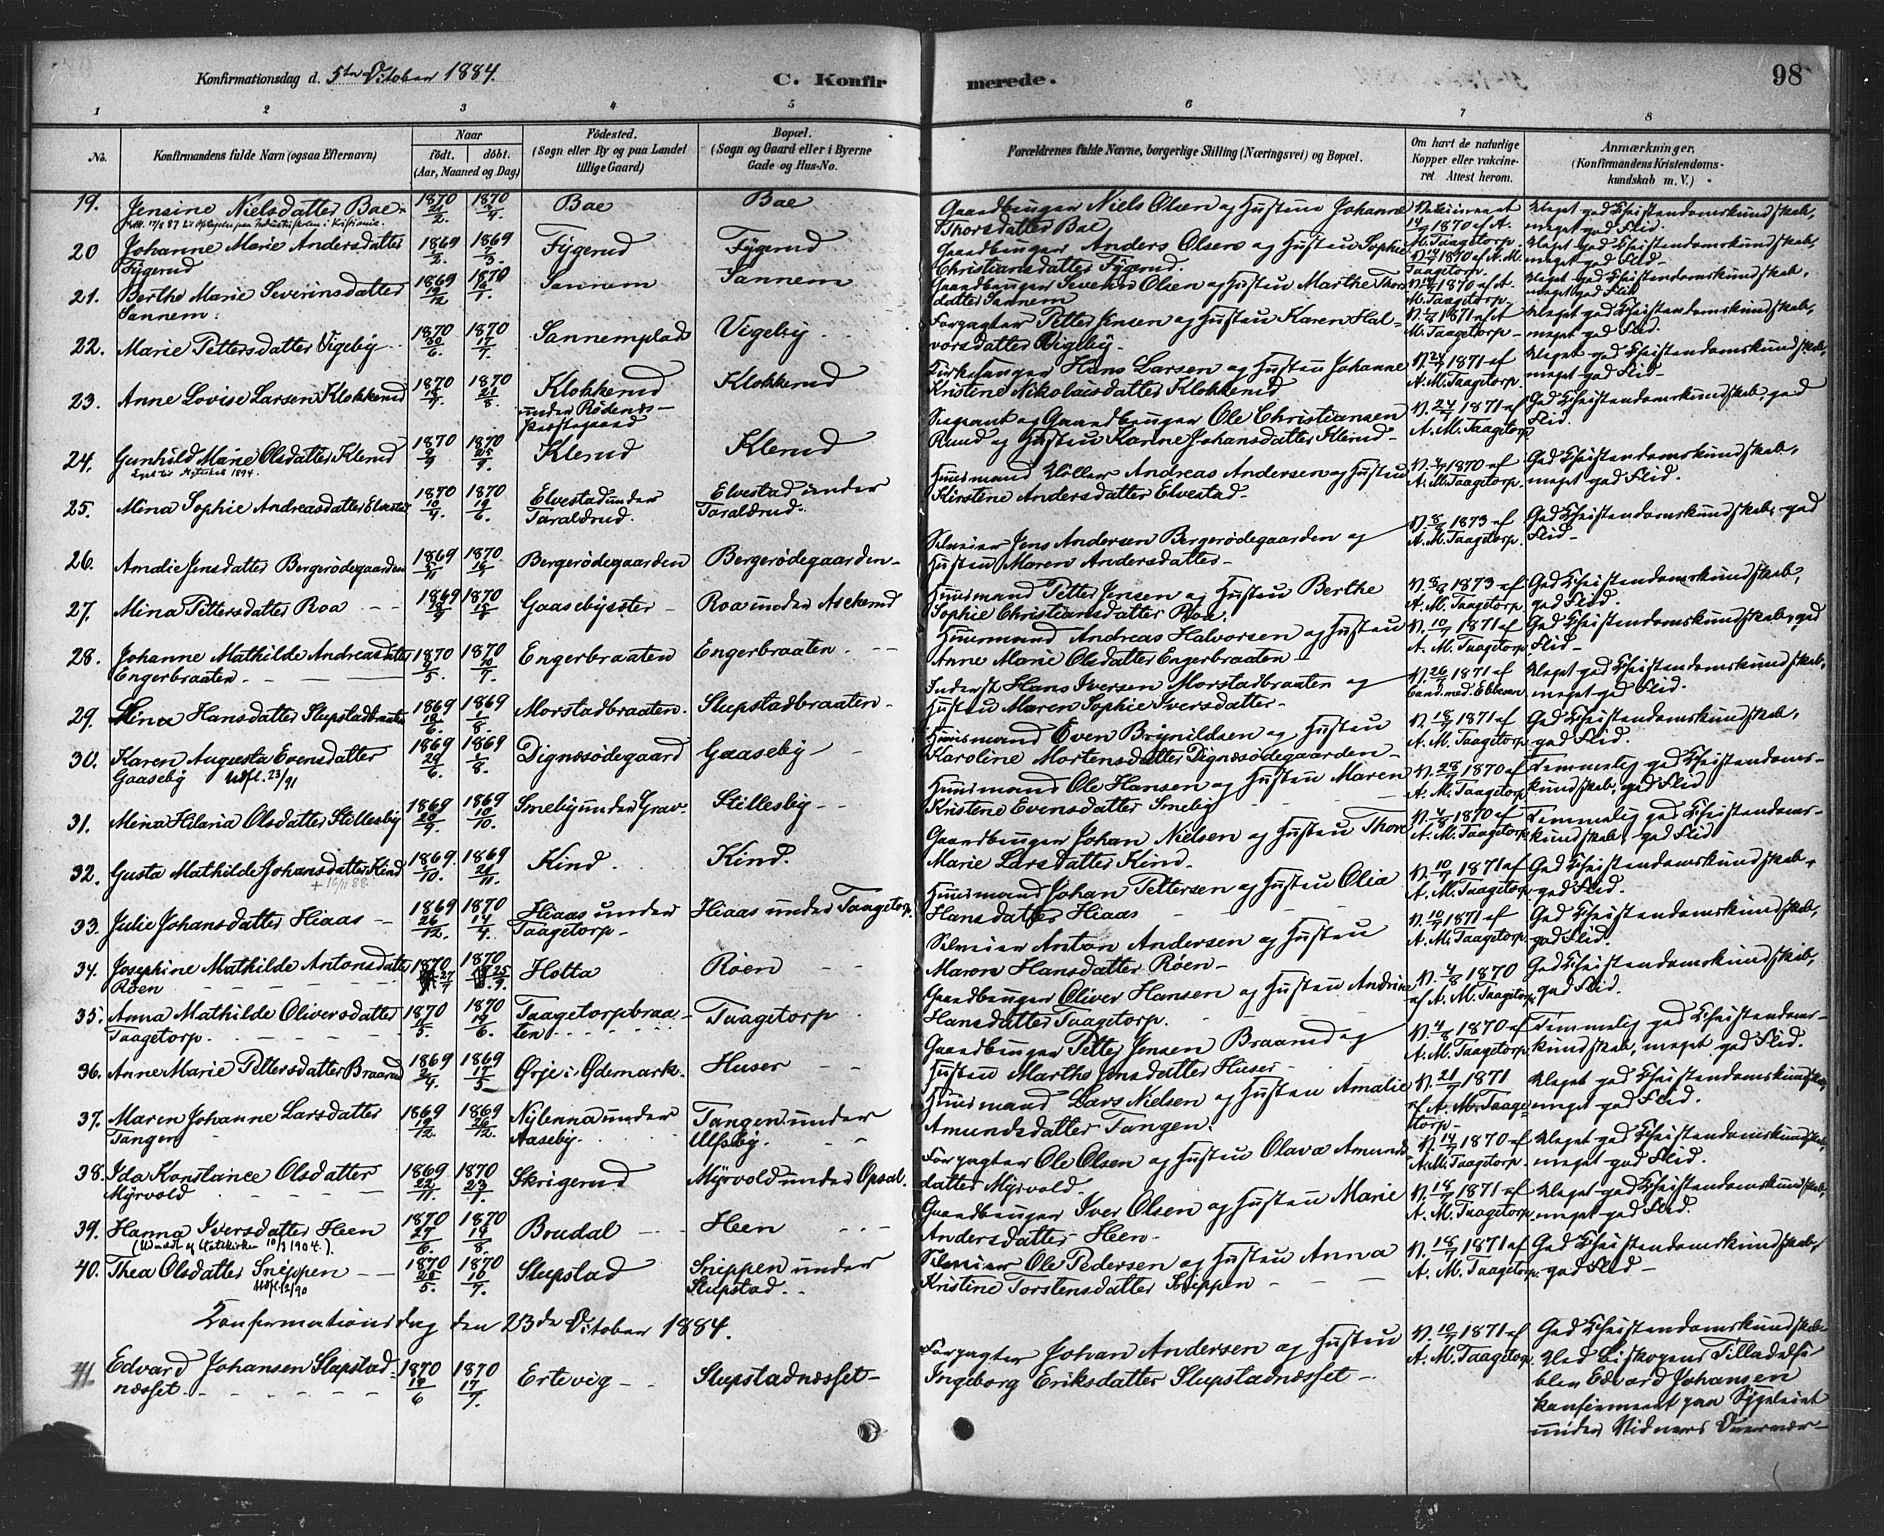 Konfirmationsdag d. 5te October 1884.
C. Konfirmerede.
98
1 2 3 4 5 6 7 8
No.
Konfirmandens fulde Navn (ogsaa Efternavn)
Naar
födt. döbt.
(Aar, Maaned og Dag)
Födested.
(Sogn eller By og paa Landet
tillige Gaard)
Bopæl.
(Sogn og Gaard eller i Byerne
Gade og Hus-No.
Forældrenes fulde Navne, borgerlige Stilling (Næringsvei) og Bopæl.
Om havt de naturlige
Kopper eller vakcine-
ret Attest herom.
Anmærkninger.
(Konfirmandens Kristendoms-
kundskab m. V.)
19. Jensine Nielsdatter Bae 1870 1870 Bae Bae Gaardbruger Niels Olsen og Hustru Johanne
Thorsdatter Bae Meget god Christendomskundskab, meget god Flid.
20 Johanne Marie Andersdatter 1869 1869 Fygerud Fygerud Gaardbruger Anders Olsen og Hustru Sophie
Fygerud Christiansdatter Fygerud. Meget god Christendomskundskab, meget god Flid.
21. Berthe Marie Severinsdatter 1869 1870 Sannem Sannem Gaardbruger Severin Olsen og Hustru Marthe Thors-
Sannem. datter Sannem Meget god Christendomskundskab, meget god Flid
22. Marie Pettersdatter Vigeby 1870 30/6 1870 17/7 Sannemplads Vigeby Forpagter Petter Jensen og Hustru Karen Hal-
vorsdatter Vigeby. Meget god Christendomskundskab, meget god Flid.
23. Anne Lovise Larsen Klokkerud 1870 1870 21/8 Klokkerud Klokkerud Kirkesanger Hans Larsen og Hustru Johanne
under Rødenes Præstegaard Kristine Nikolaisdatter Klokkerud V. 24/7 1871 af A. M. Taagetorp. Meget god Christendomskundskab, meget god Flid
24. Gunhild Marie Olsdatter Klerud 1870 1870 Klerud Klerud Sergeant og Gaardbruger Ole Christiansen
Ruud og Hustru Karine Johansdatter Klerud V. 24/7 1871 af A. M. Taagetorp God Christendomskundskab, god Flid.
25. Mina Sophie Andreasdatter Elvestad 1870 1870 19/6 Elvestad under Taraldrud. Elvestad under Taraldrud. Huusmand Møller Andreas Andersen og Hustru
Kirstine Andersdatter Elvestad A. M. Taagetorp. God Christendomskundskab, meget god Flid.
26. Amalie Jensdatter Bergerødegaarden 1869 1870 Bergerødegaarden Bergerødegaarden Selveier Jens Andersen Bergerødegaarden og
Hustru Maren Andersdatter V. 8/8 1873 af A. M. Taagetorp. God Christendomskundskab, god Flid
27. Mina Pettersdatter Roa 1869 1870 Gaasebyseter Roa under Askerud Huusmand Petter Jensen og Hustru Berthe
Sophie Christiansdatter Roa. V. 8/8 1873 af A. M. Taagetorp God Christendomskundskab, god Flid.
28. Johanne Mathilde Andreasdatter 1870 1870 Engerbraaten Engerbraaten. Huusmand Andreas Halvorsen og Hustru
Engerbraaten. Anne Marie Olsdatter Engerbraaten V. 10/7 1871 af A. M. Taagetorp. God Christendomskundskab, god Flid
29. Lina Hansdatter Slupstadbraaten 1869 18/6 1869 1/8 Morstadbraaten. Slupstadbraaten Inderst Hans Iversen Morstadbraaten og
Hustru Maren Sophie Iversdatter V. 26/7 1871 af Cand. med. Ebbesen Meget god Christendomskundskab, meget god Flid.
30. Karen Augusta Evensdatter 1869 29/6 1869 1/8 Dignæsødegaard Gaaseby Huusmand Even Brynildsen og Hustru
Gaaseby Udfl. 23/91 Karoline Mortensdatter Dignæsødegaarden V. 18/7 1871 af A. M. Taagetorp. God Christendomskundskab, god Flid.
31. Mina Hilaria Olsdatter Stillesby 1869 20/9 1869 10/10. Smeby under Grav. Stillesby Huusmand Ole Hansen og Hustru Maren
Kristine Evensdatter Smeby A. M. Taagetorp. Temmelig god Christendoms-
kundskab, god Flid
32. Gusta Mathilde Johansdatter Kind 1869 1869 21/11. Kind. Kind. Gaardbruger Johan Nielsen og Hustru Thore
+ 16/11 88. Marie Larsdatter Kind. V. 4/8 1870 af A. M. Taagetorp Temmelig god Christendoms-
kundskab, god Flid
33. Julie Johansdatter Hiaas 1869 26/12. 1870 14/4. Hiaas under Taagetorp Hiaas under Taagetorp. Huusmand Johan Pettersen og Hustru Olia
Hansdatter Hiaas V. 10/7 1871 af A. M. Taagetorp. God Christendomskundskab, god Flid.
34. Josephine Mathilde Antonsdatter 1870 27/7 1870 25/9. Holta Røen Selveier Anton Andersen og Hustru
Røen Maren Hansdatter Røen V. 10/7 1871 af A. M. Taagetorp. God Christendomskundskab, god Flid.
35. Anna Mathilde Oliversdatter 1870 1870 19/6. Taagetorpbraa-
ten Taagetorp Gaardbruger Oliver Hansen og Hustru Andrine
Taagetorp. Hansdatter Taagetorp. V. 4/8 1870 af A. M. Taagetorp God Christendomskundskab, god Flid.
36. Anne Marie Pettersdatter Braarud 1869 2/4. 1869 17/5 Ørje i Ødemark. Huser Gaardbruger Petter Jensen Braarud og
Hustru Marthe Jensdatter Huser V. 4/8 1870 af A. M. Taagetorp. Temmelig god Christendoms-
kundskab, meget god Flid.
37. Maren Johanne Larsdatter 1869 19/12. 1869 26/12. Nylenna under Aaseby. Tangen under Ulfsby. Huusmand Lars Nielsen og Hustru Amalie
Tangen Amundsdatter Tangen. V. 21/7 1871 af A. M. Taage-
torp. Meget god Christendomskundskab, meget god Flid.
38. Ida Konstance Olsdatter 1869 22/11. 1870 23/1. Skrigerud Myrvold under Opsal. Forpagter Ole Olsen og Hustru Olava Amunds-
Myrvold datter Myrvold. V. 14/7 1870 af A. M. Taagetorp. Meget god Christendomskundskab, meget god Flid.
39. Hanna Iversdatter Heen 1870 27/6. 1870 14/8. Brudal Heen Gaardbruger Iver Olsen og Hustru Marie
(Udmeldt af Statskirken 10/3 1904.). Andersdatter Heen V. 18/7 1871 af A. M. Taagetorp. Meget god Christendomskundskab, meget god Flid.
40. Thea Olsdatter Sneppen 1870 1870 10/7. Slupstad Sneppen under Slupstad. Selveier Ole Pedersen og Hustru Anna
Kristine Torstensdatter Sneppen V. 18/7 1871 af A. M. Taagetorp. God Christendomskundskab, god Flid
Confirmationsdag den 23de October 1884.
41 Edvard Johansen Slupstad- 1870 19/6 1870 17/7. Ertevig Slupstadnæsset Forpagter Johan Andersen og Hustru
næsset. Ingeborg Eriksdatter Slupstadnæsset V. 10/7 1871 af A. M. Taagetorp. God Christendomskundskab
Med Biskopens Tilladelse
blev Edvard Johansen
konfirmeret paa Sygeleiet
under Vidners Overvær